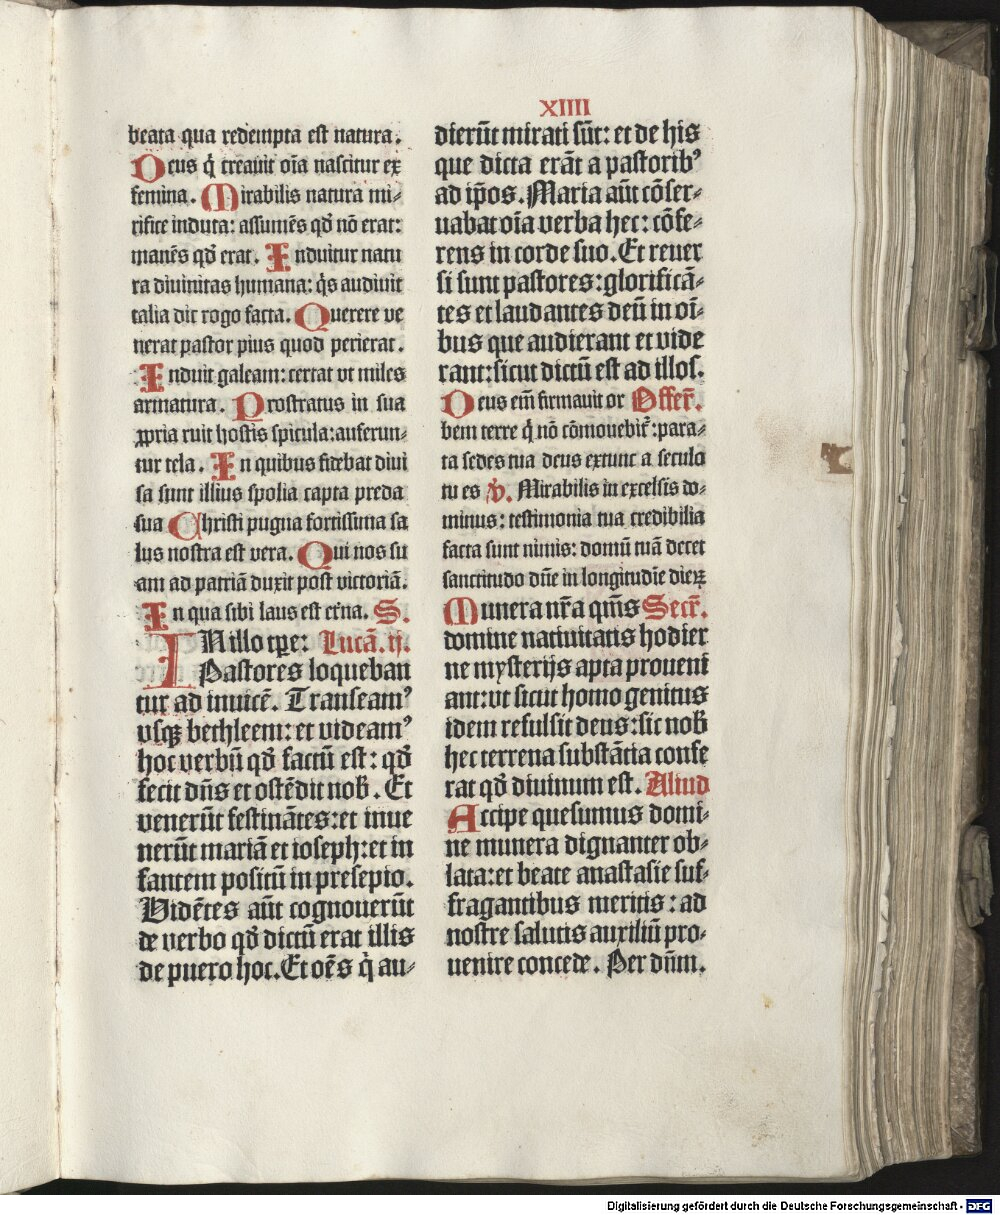 XIIII
beata qua redempta est natura.
Deus q̇ creauit oĩa nascitur ex
femina. Mirabilis natura mi⸗
rifice induta: assumẽs qđ nõ erat:
manẽs qđ erat. Induitur natu
ra diuinitas humana: q̇s audiuit
talia dic rogo facta. Querere ve
nerat pastor pius quod perierat.
Induit galeam: certat vt miles
armatura. Prostratus in sua
ꝓpria ruit hostis spicula: auferun⸗
tur tela. In quibus fidebat diui
sa sunt illius spolia capta preda
sua Christi pugna fortissima sa
lus nostra est vera. Qui nos su
am ad patriã duxit post victoriã.
In qua sibi laus est etẽna. S.
IN illo tꝑe: Lucã. ij.
Pastores loqueban
tur ad inuicẽ. Transeamꝰ
vsqꝫ bethleem: et videamꝰ
hoc verbũ qđ factũ est: qđ
fecit dñs et ostẽdit nob̃. Et
venerũt festinãtes: et inue
nerũt mariã et ioseph: et in
fantem positũ in presepio.
Vidẽtes aũt cognouerũt
de verbo qđ dictũ erat illis
de puero hoc. Et oẽs q̇ au⸗
dierũt mirati sũt: et de his
que dicta erãt a pastoribꝰ
ad ip̃os. Maria aũt cõser⸗
uabat oĩa verba hec: cõfe⸗
rens in corde suo. Et reuer
si sunt pastores: glorificã⸗
tes et laudantes deũ in oĩ⸗
bus que audierant et vide
rant: sicut dictũ est ad illos.
Deus em̃ firmauit or Offer̃.
bem terre q̇ nõ cõmouebit̃: para⸗
ta sedes tua deus extunc a seculo
tu es v̇. Mirabilis in excelsis do⸗
minus: testimonia tua credibilia
facta sunt nimis: domũ tuã decet
sanctitudo dñe in longitudiẽ dieꝝ
Munera nr̃a qm̃s Secr̃.
domine natiuitatis hodier
ne mysterijs apta proueni
ant: vt sicut homo genitus
idem refulsit deus: sic nob̃
hec terrena substãtia confe
rat qđ diuinum est. Aliud
Accipe quesumus domi⸗
ne munera dignanter ob⸗
lata: et beate anastasie suf⸗
fragantibus meritis: ad
nostre salutis auxiliũ pro⸗
uenire concede. Per dñm.
Digitalisierung gefördert durch die Deutsche Forschungsgemeinschaft - DFG